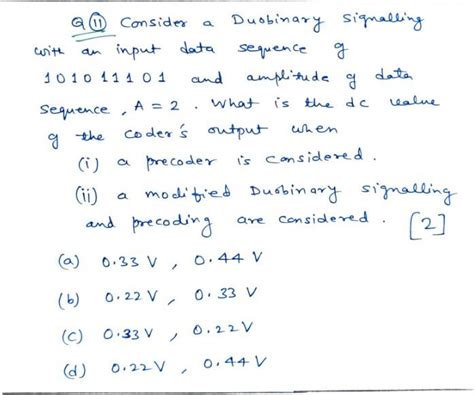 Q(11) Consider a Duobinary signalling
with an input data sequence of
101011101 and amplitude of data
sequence, A = 2. What is the dc value
of the coder's output when
(i) a precoder is considered.
(ii) a modified Duobinary signalling
and precoding are considered. [2]
(a) 0.33 V , 0.44 V
(b) 0.22 V , 0.33 V
(c) 0.33 V , 0.22 V
(d) 0.22 V , 0.44 V